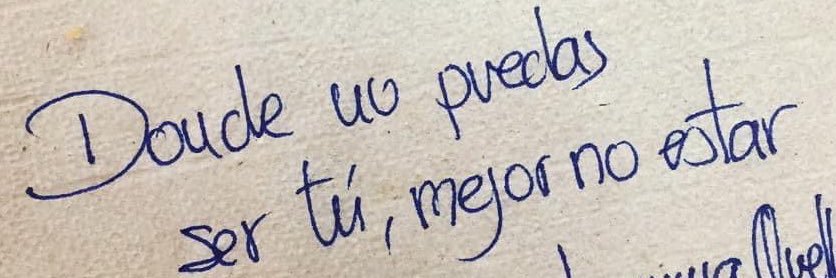 Donde no puedas
ser tú, mejor no estar